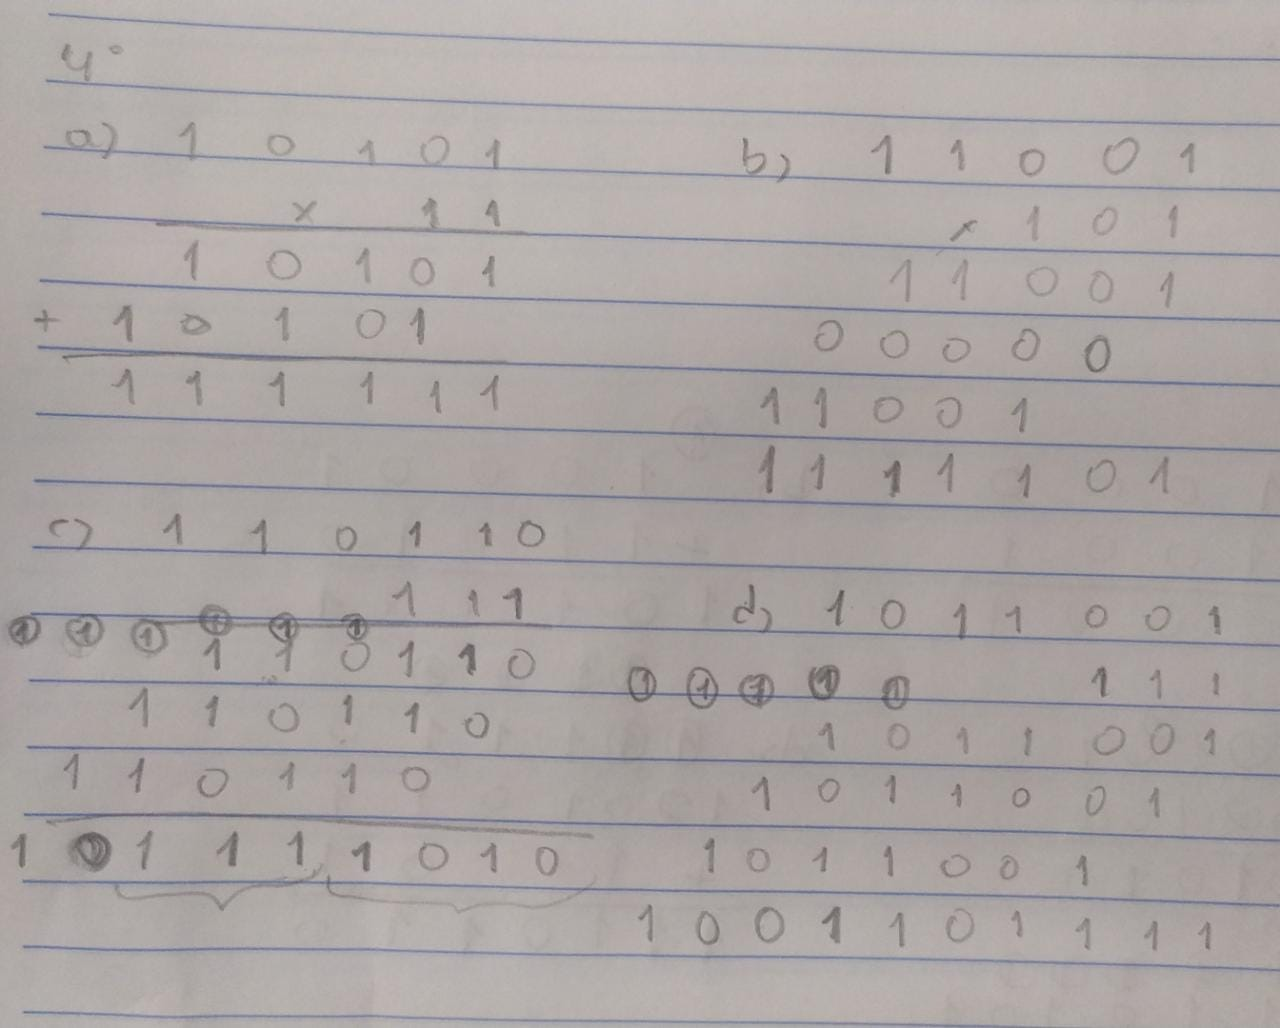 4°
a) 1 0 1 0 1
x 1 1
1 0 1 0 1
+ 1 0 1 0 1
1 1 1 1 1 1
b) 1 1 0 0 1
x 1 0 1
1 1 0 0 1
0 0 0 0 0
1 1 0 0 1
1 1 1 1 1 0 1
c) 1 1 0 1 1 0
1 1 1
1 1 1 1 1 1
1 1 0 1 1 0
1 1 0 1 1 0
1 1 0 1 1 0
1 0 1 1 1 1 0 1 0
d) 1 0 1 1 0 0 1
1 1 1
1 1 1 1 1
1 0 1 1 0 0 1
1 0 1 1 0 0 1
1 0 1 1 0 0 1
1 0 0 1 1 0 1 1 1 1